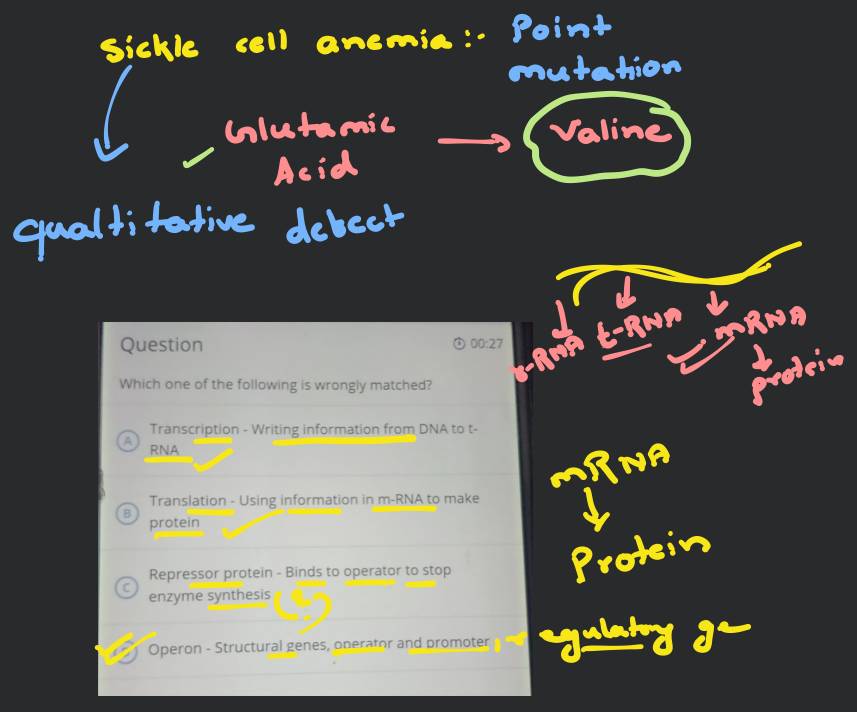 Sickle cell anemia :- Point
mutation
Glutamic
Acid
Valine
qualtitative debect
r-RNA t-RNA mRNA
protein
Question
00:27
Which one of the following is wrongly matched?
A Transcription - Writing information from DNA to t-
RNA
B Translation - Using information in m-RNA to make
protein
C Repressor protein - Binds to operator to stop
enzyme synthesis (?)
Operon - Structural genes, operator and promoter, regulatory ge
mRNA
Protein